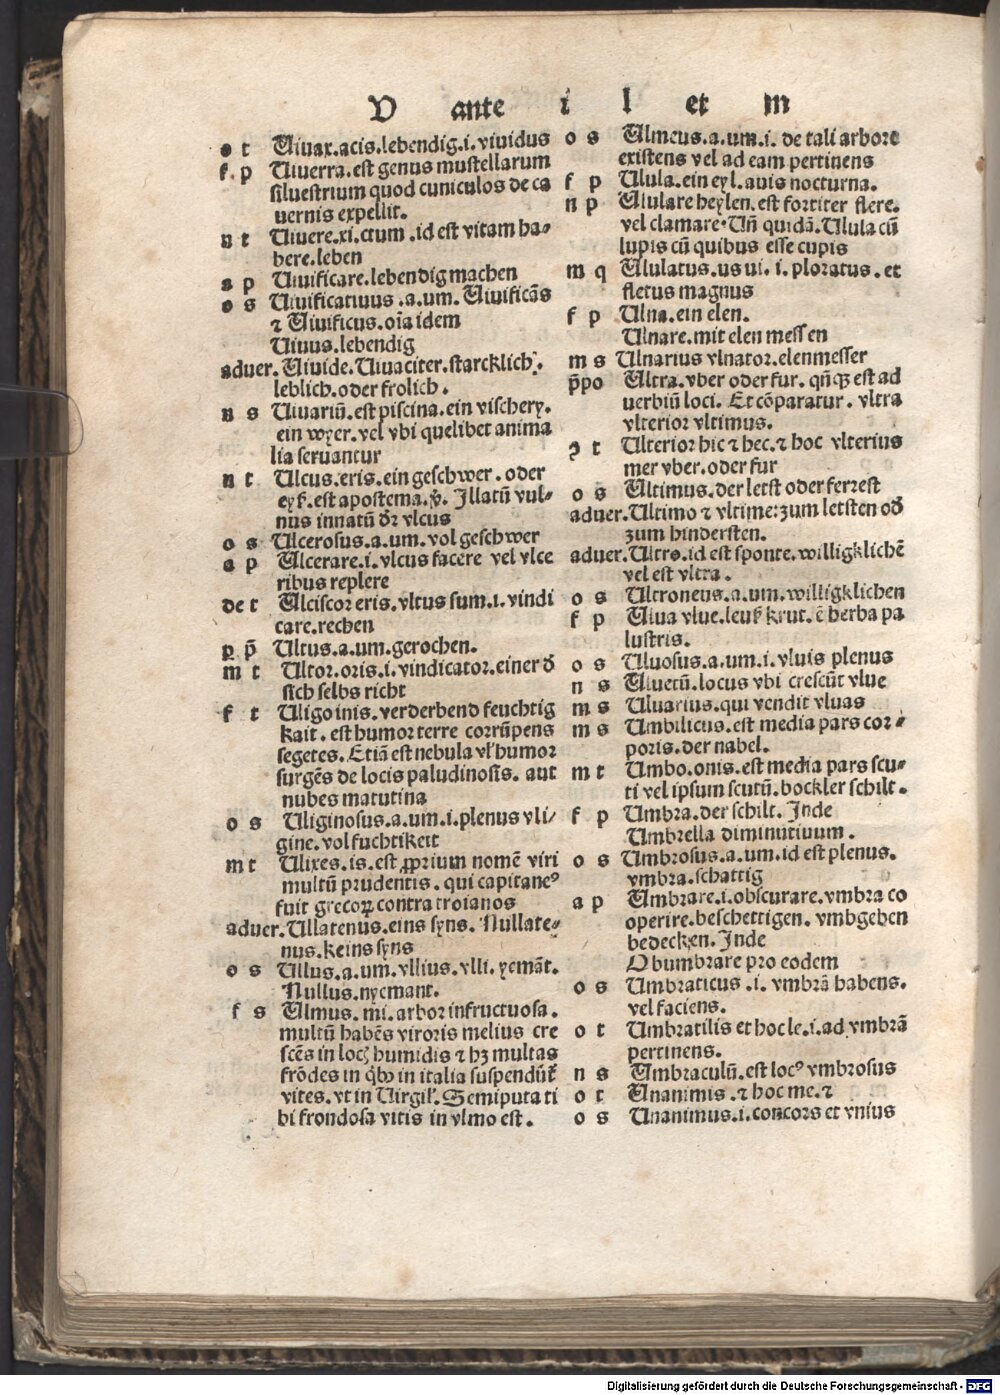 V ante i l et m
o t Viuax.acis.lebendig.i.viuidus
f p Viuerra.est genus mustellarum
siluestrium quod cuniculos de ca
uernis expellit.
n t Viuere.xi.ctum.id est vitam ha⸗
bere.leben
a p Viuificare.lebendig machen
o s Viuificatiuus.a.um. Viuificãs
⁊ Viuificus.oĩa idem
Viuus.lebendig
aduer. Viuide.Viuaciter.starcklich.
leblich.oder frolich.
n s Viuariũ.est piscina.ein vischery.
ein wyer.vel vbi quelibet anima
lia seruantur
n t Vlcus.eris.ein geschwer.oder
eyß.est apostema.ꝟ. Illatũ vul⸗
nus innatũ dr̃ vlcus
o s Vlcerosus.a.um.vol geschwer
a p Vlcerare.i.vlcus facere vel vlce
ribus replere
de t Vlciscor eris.vltus sum.i.vindi
care.rechen
p p̃ Vltus.a.um.gerochen.
m t Vltor.oris.i.vindicator.einer đ
sich selbs richt
f t Vligo inis.verderbend feuchtig
kait.est humor terre corrũpens
segetes. Etiã est nebula vl' humor
surgẽs de locis paludinosis. aut
nubes matutina
o s Vliginosus.a.um.i.plenus vli⸗
gine.vol fuchtikeit
m t Vlixes.is.est ꝓprium nomẽ viri
multũ prudentis.qui capitaneꝰ
fuit grecoꝝ contra troianos
aduer. Vllatenus.eins syns. Nullate⸗
nus.keins syns
o s Vllus.a.um.vllius.vlli.yemãt.
Nullus.nyemant.
f s Vlmus.mi.arbor infructuosa.
multũ habẽs viroris melius cre
scẽs in locꝭ humidis ⁊ hꝫ multas
frõdes in qbꝰ in italia suspendũt
vites.vt in Virgil'. Semiputa ti
bi frondosa vitis in vlmo est.
o s Vlmeus.a.um.i.de tali arbore
existens vel ad eam pertinens
f p Vlula.ein eyl.auis nocturna.
n p Vlulare heylen.est fortiter flere.
vel clamare.Vñ quidã.Vlula cũ
lupis cũ quibus esse cupis
m q Vlulatus.us ui.i.ploratus.et
fletus magnus
f p Vlna.ein elen.
Vlnare.mit elen messen
m s Vlnarius vlnator.elenmesser
p̃po Vltra.vber oder fur.qñqꝫ est ad
uerbiũ loci. Et cõparatur.vltra
vlterior vltimus.
ꝯ t Vlterior hic ⁊ hec.⁊ hoc vlterius
mer vber.oder fur
o s Vltimus.der letst oder ferrest
aduer. Vltimo ⁊ vltime:zum letsten ođ
zum hindersten.
aduer. Vltro.id est sponte.willigklichẽ
vel est vltra.
o s Vltroneus.a.um.willigklichen
f p Vlua vlue.leuß krut.ẽ herba pa
lustris.
o s Vluosus.a.um.i.vluis plenus
n s Vluetũ.locus vbi crescũt vlue
m s Vluarius.qui vendit vluas
m s Vmbilicus.est media pars cor⸗
poris.der nabel.
m t Vmbo.onis.est media pars scu⸗
ti vel ipsum scutũ.bockler schilt.
f p Vmbra.der schilt. Inde
Vmbrella diminutiuum.
o s Vmbrosus.a.um.id est plenus.
vmbra.schattig
a p Vmbrare.i.obscurare.vmbra co
operire.beschettigen.vmbgeben
bedecken.Inde
Obumbrare pro eodem
o s Vmbraticus.i.vmbrã habens.
vel faciens.
o t Vmbratilis et hoc le.i.ad vmbrã
pertinens.
n s Vmbraculũ.est locꝰ vmbrosus
o t Vnanimis.⁊ hoc me.⁊
o s Vnanimus.i.concors et vnius
Digitalisierung gefördert durch die Deutsche Forschungsgemeinschaft - DFG